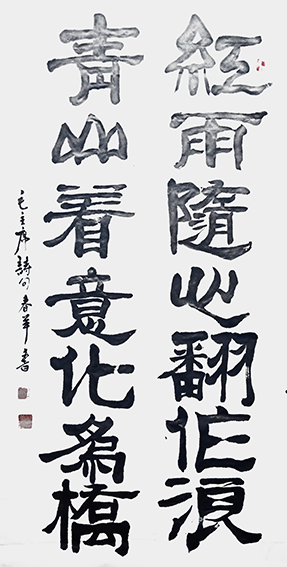 紅雨隨心翻作浪
青山着意化為橋
毛主席詩句春書